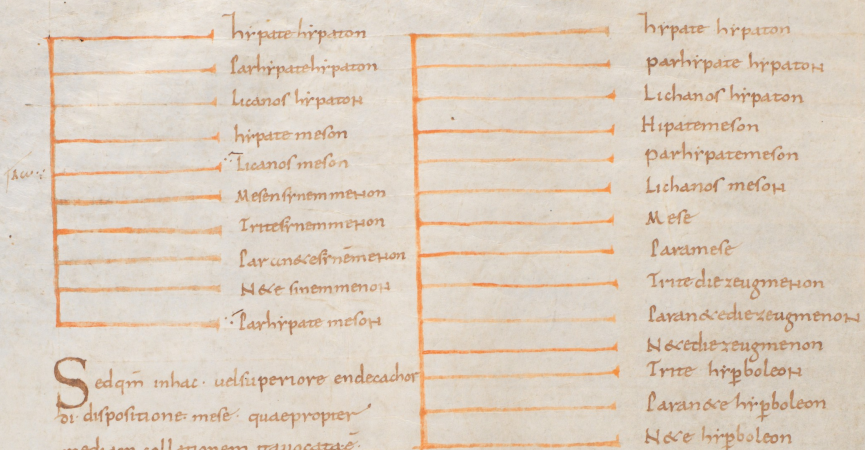 hypate hypaton
Parhypatehypaton
Licanos hypaton
hypate meson
Licanos meson
Mesensynemmenon
Tritesynemmenon
Paran&esynēmenon
N&e sinemmenon
Parhypate meson
Sedqm̄ inhac · uelsuperiore endecachor
di · dispositione · mese · quaepropter
hypate hypaton
parhypate hypaton
Lichanos hypaton
Hipatemeson
parhypatemeson
Lichanos meson
Mese
Paramese
Trite diezeugmenon
Paran&ediezeugmenon
N&ediezeugmenon
Trite hyꝑboleon
Paran&e hyꝑboleon
N&e hyꝑboleon